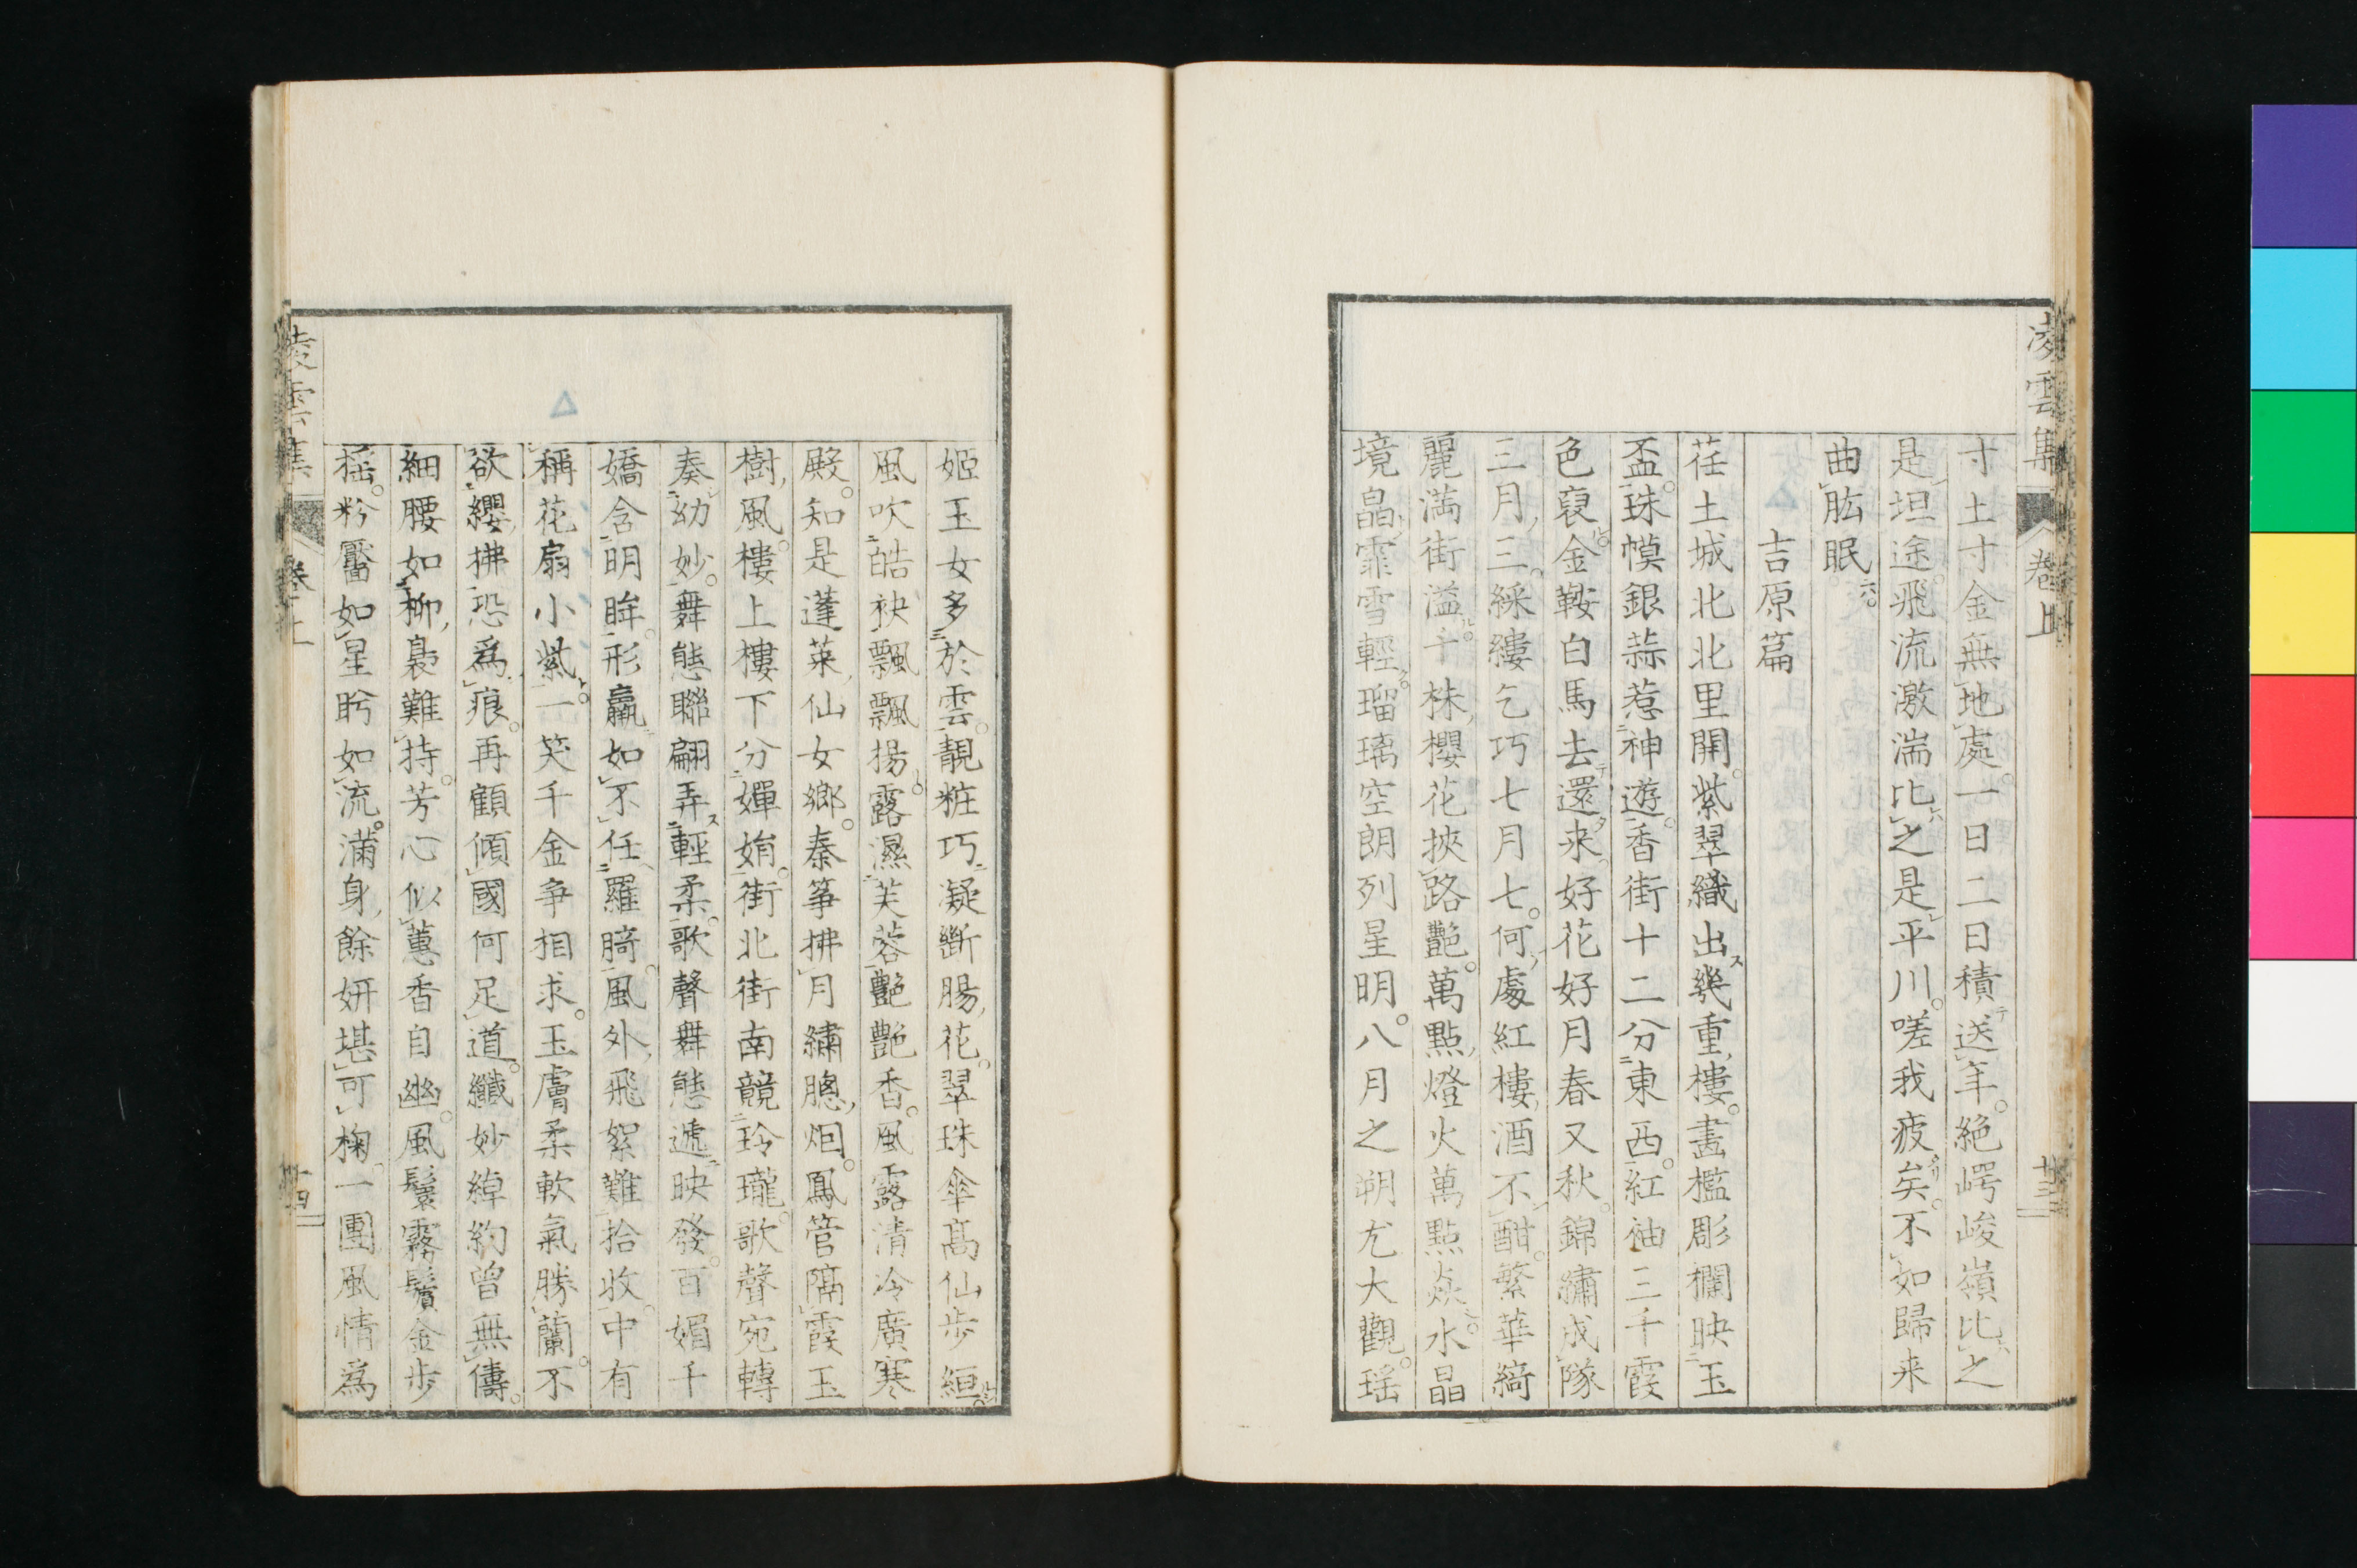 凌雲集 卷上 廿三
寸土寸金無地處。一日二日積送年。絶崿峻嶺比之
是坦途。飛流激湍比之是平川。嗟我疲矣。不如歸来
曲肱眠。
吉原篇
荏土城北北里開。紫翠織出幾重樓。畵檻彫欄映玉
盃。珠幙銀蒜惹神遊。香街十二分東西。紅袖三千霞
色裒。金鞍白馬去還来。好花好月春又秋。錦繡成隊
三月三。綵縷乞巧七月七。何處紅樓酒不酣。繁華綺
麗満街溢。千株櫻花挾路艷。萬點燈火萬點焱。水晶
境皛霏雪輕。瑠璃空朗列星明。八月之朔尤大觀。瑶
姬玉女多於雲。靚粧巧凝斷腸花。翠珠傘髙仙歩絙。
風吹皓袂飄飄揚。露濕芙蓉艷艷香。風露清冷廣寒
殿。知是蓬萊仙女鄉。秦箏拂月繡牕烟。鳳管隔霞玉
樹風。樓上樓下分嬋娟。街北街南競玲瓏。歌聲宛轉
奏幼妙。舞態聯翩弄輕柔。歌聲舞態遞映發。百媚千
嬌含明眸。形羸如不任羅䏿。風外飛絮難拾收。中有
稱花扇小紫。一笑千金爭相求。玉膚柔軟氣勝蘭。不
欲纓拂恐爲痕。再顧傾國何足道。纖妙綽約曽無儔。
細腰如柳裊難持。芳心似蕙香自幽。風鬟霧鬢金歩
摇。粉黶如星眄如流。滿身餘妍堪可掬。一團風情爲
凌雲集 卷上 廿四